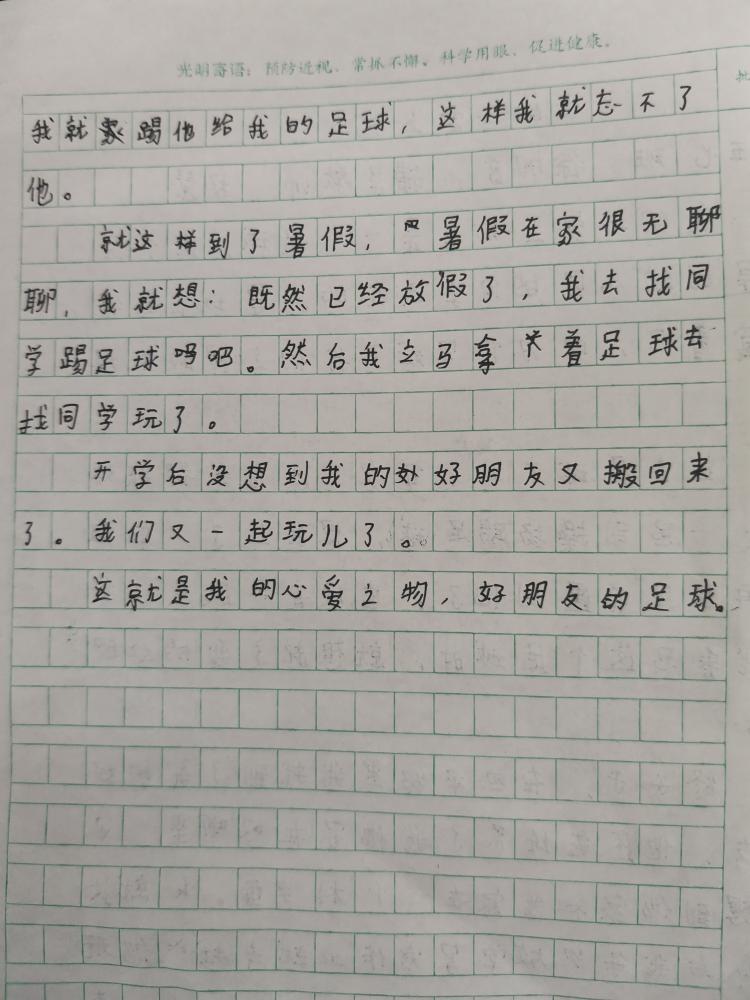 光明寄语：预防近视、常抓不懈。科学用眼、促进健康。
批
我就家踢他给我的足球，这样我就忘不了
他。
就这样到了暑假，暑假在家很无聊
聊，我就想：既然已经放假了，我去找同
学踢足球吗吧。然后我立马拿着足球去
找同学玩了。
开学后没想到我的好好朋友又搬回来
了。我们又一起玩儿了。
这就是我的心爱之物，好朋友的足球。